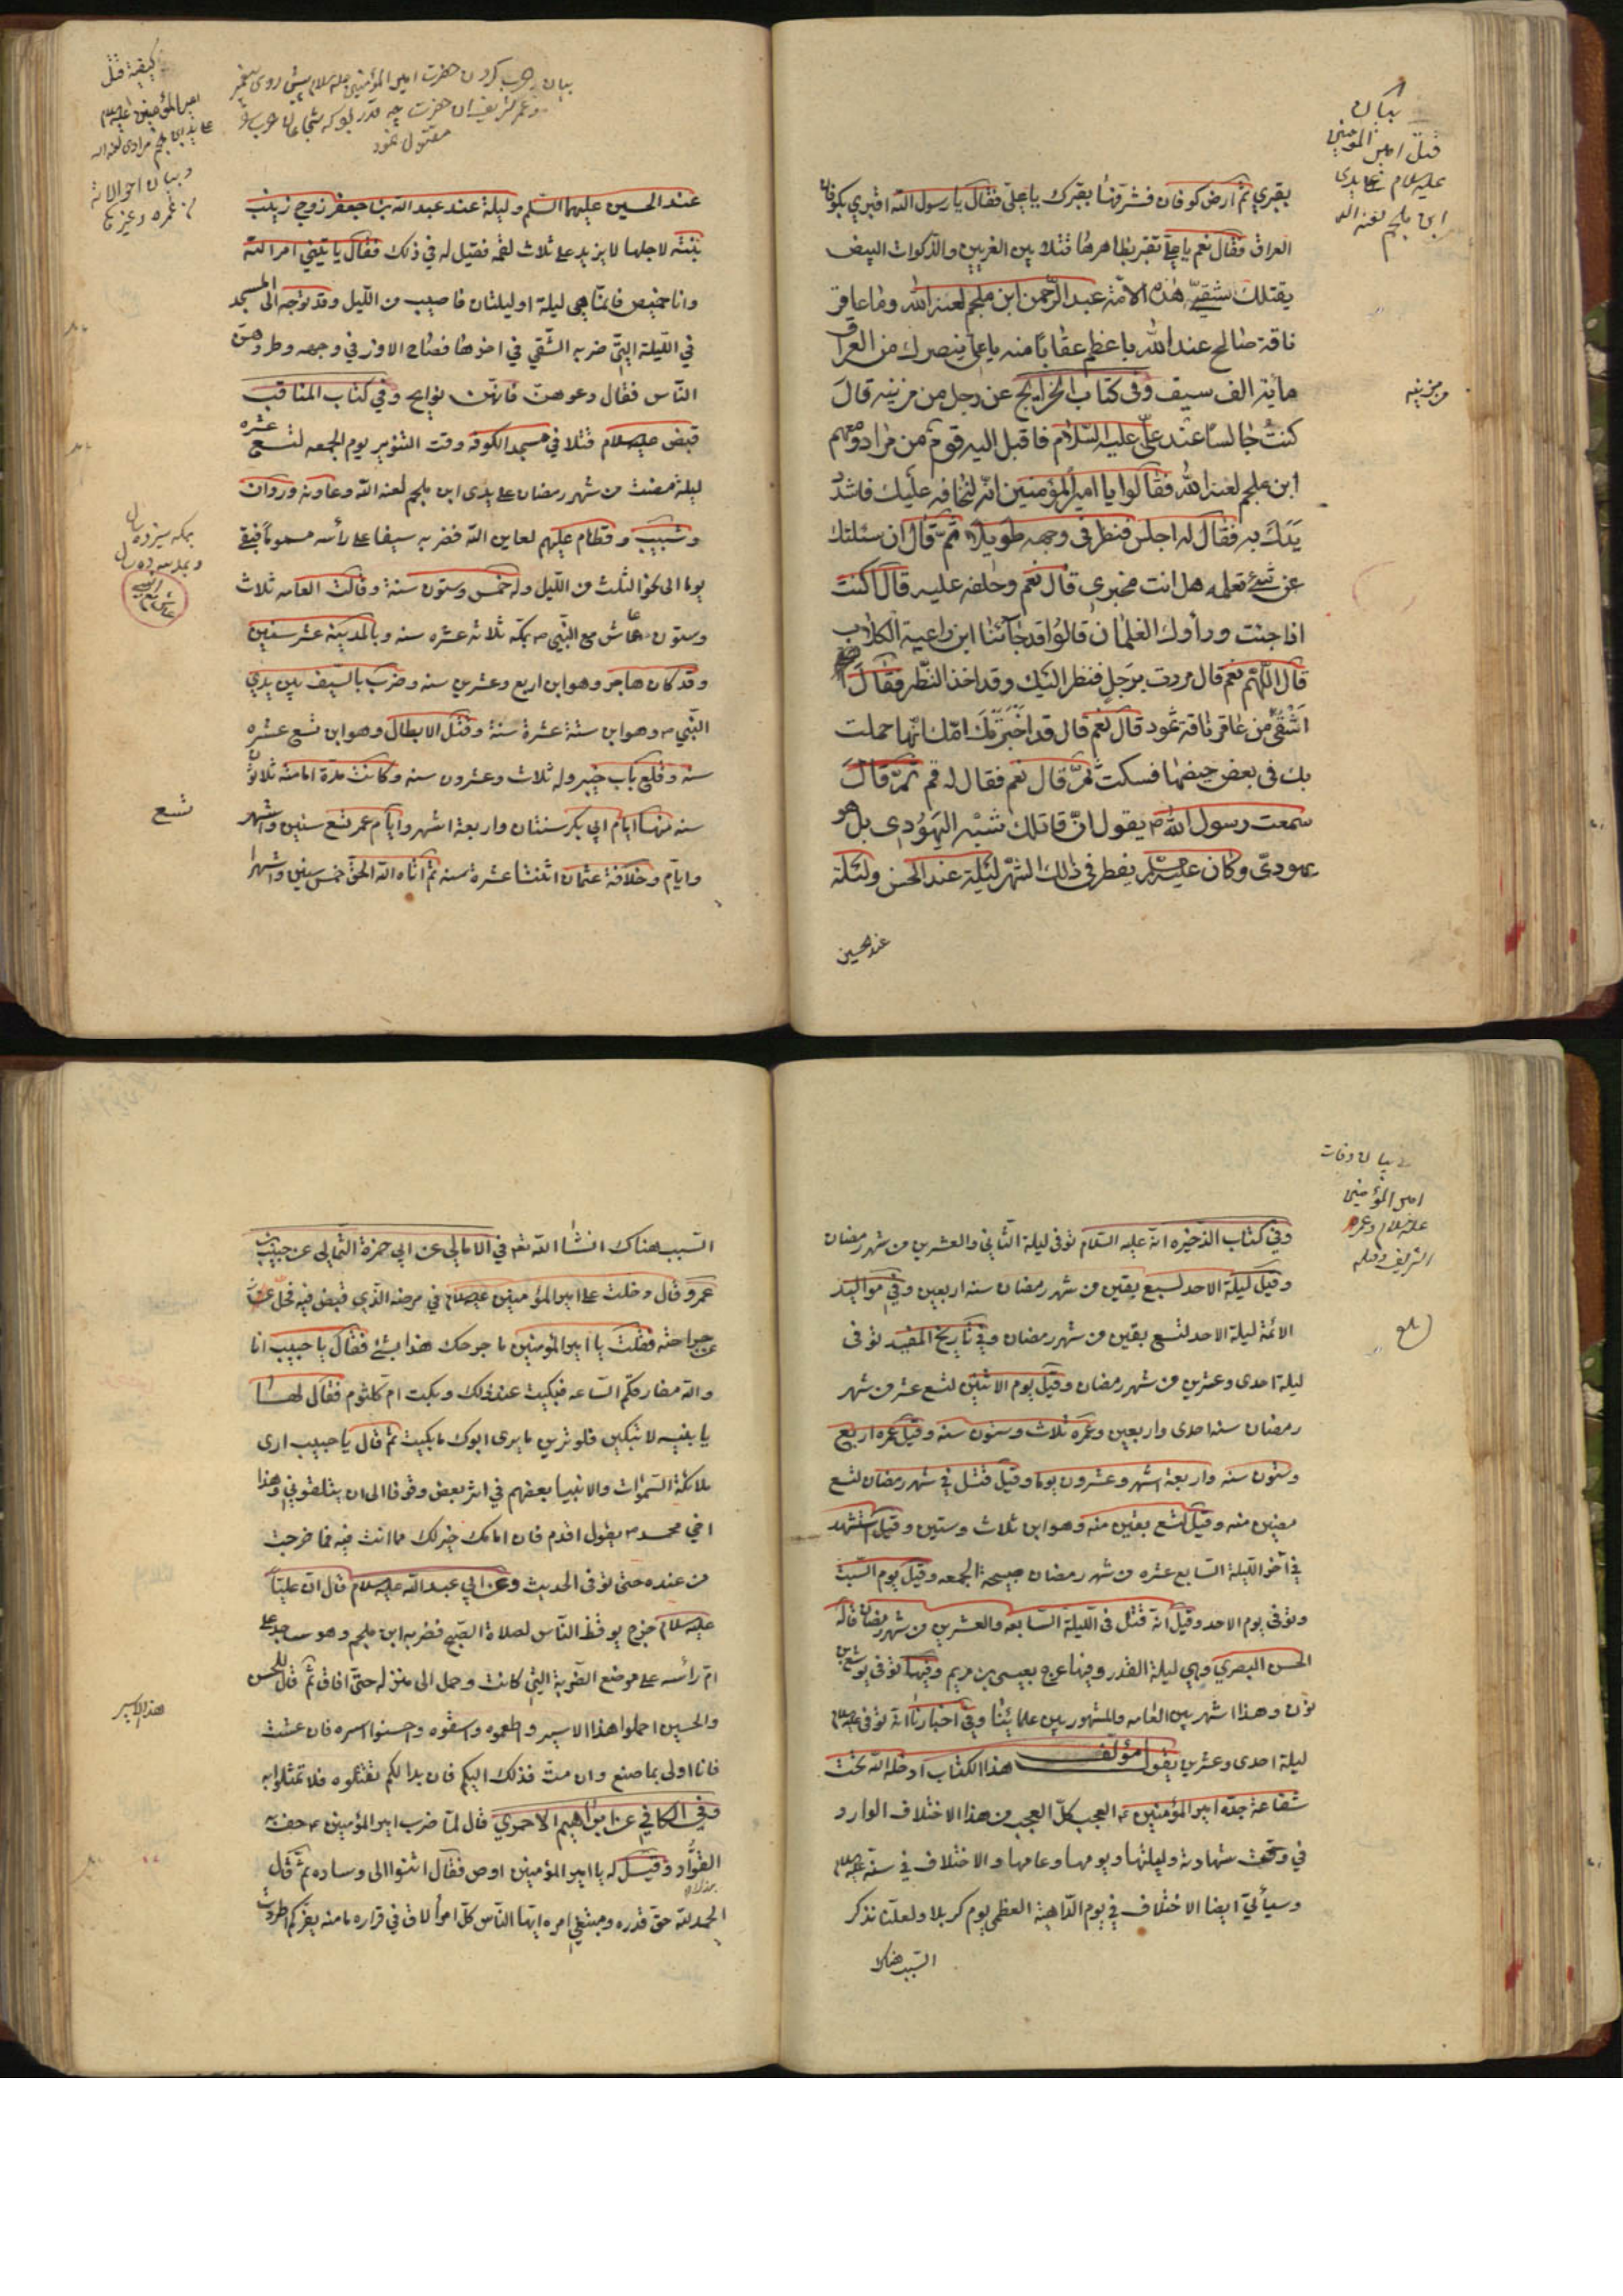 بيان
قتل امير المؤمنين
عليه السلام على يدى
ابن ملجم لعنه الله
بقبري ثم ارض كوفان فشرفها بقبرك يا على فقال يا رسول الله اقبري بكوفان
العراق فقال نعم يا على تقبر بظاهرها قتلا بين الغريين والذكوات البيض
يقتلك شقى هذه الامة عبد الرحمن ابن ملجم لعنه الله وما عاقر
ناقة صالح عند الله باعظم عقابا منه يا على ينصرك من العراق
مأية الف سيف وفى كتاب الخرايج عن رجل من مزينه قال
من مزينه
كنت جالسا عند على عليه السلام فاقبل اليه قوم من مراد ومعهم
ابن ملجم لعنه الله فقالوا يا امير المؤمنين انه لنخافه عليك فاشدد
يدك به فقال له اجلس فنظر فى وجهه طويلا ثم قال ان سئلتك
عن شئ تعلمه هل انت مخبري قال نعم وحلفه عليه قال اكنت
اذا جئت ورأوك الغلمان قالوا قد جآئنا ابن راعية الكلاب
قال اللهم نعم قال مررت برجل فنظر اليك وقد اخذ النظر فقال
اشقى من عاقر ناقة ثمود قال نعم قال قد اخبرتك امك انها حملت
بك فى بعض حيضها فسكت ثم قال نعم فقال له قم ثم قال
سمعت رسول الله ص يقول ان قاتلك شبه اليهودى بل هو
يهودى وكان عليه السلم يفطر فى ذلك الشهر ليلة عند الحسن وليلة
عند الحسين
كيفية قتل
امير المؤمنين عليه السلام
على يد ابن ملجم مرادى لعنه الله
وبيان احوالاته
من عمره وغيرها
مقتول نمود
عند الحسين عليهما السلم وليلة عند عبد الله بن جعفر زوج زينب
بنته لاجلها لا يزيد على ثلاث لقمه فقيل له في ذلك فقال يا تينى امر الله
وانا خميص فانما هي ليلة او ليلتان فاصيب من الليل وقد توجه الى المسجد
في الليلة التي ضربه الشقي في اخرها فصاح الاوز في وجهه وطردوهن
الناس فقال دعوهن فانهن نوايح وفي كتاب المناقب
قبض عليه السلام قتلا في مسجد الكوفه وقت التنوير يوم الجمعه لتسع عشره
ليلة مضت من شهر رمضان على يدى ابن ملجم لعنه الله وعاونه وروان
وشبيب وقطام عليهم لعاين الله فضربه سيفا على رأسه مسموما فبقى
يوما الى نحو الثلث من الليل وله خمس وستون سنة وقالت العامه ثلاث
وستون عاش مع النبي ص بمكه ثلاثه عشره سنه وبالمدينة عشر سنين
وقد كان هاجر وهو ابن اربع وعشرين سنه وضرب بالسيف بين يدي
النبي ص وهو ابن ستة عشرة سنة وقتل الابطال وهو ابن تسع عشره
سنه وقلع باب خيبر وله ثلاث وعشرون سنه وكانت مدة امامته ثلاثون
سنه منها ايام ابي بكر سنتان واربعة اشهر وايام عمر تسع سنين واشهر
تسع
وايام وخلافة عثمان اثنتا عشرة سنه ثم اتاه الله الحق خمس سنين واشهرا
بيان وفات
امير المؤمنين
عليه السلام وعمره
الشريف وقتله
وفي كتاب الذخيره انه عليه السلام توفى ليلة الثاني والعشرين من شهر رمضان
وقيل ليلة الاحد لسبع بقين من شهر رمضان سنه اربعين وفي مواليد
الائمة ليلة الاحد لتسع بقين من شهر رمضان وفي تاريخ المفيد توفى
بلغ
ليلة احدى وعشرين من شهر رمضان وقيل يوم الاثنين لتسع عشر من شهر
رمضان سنه احدى واربعين وعمره ثلاث وستون سنه وقيل عمره اربع
وستون سنه واربعة اشهر وعشرون يوما وقيل قتل في شهر رمضان لتسع
مضين منه وقيل لتسع بقين منه وهو ابن ثلاث وستين وقيل استشهد
في آخر الليلة السابع عشره من شهر رمضان صبيحة الجمعه وقيل يوم السبت
وتوفى يوم الاحد وقيل انه قتل فى الليلة السابعه والعشرين من شهر رمضان قاله
الحسن البصري وهي ليلة القدر وفيها عرج بعيسى بن مريم وفيها توفى يوشع بن
نون وهذا اشهر بين العامه والمشهور بين علمائنا وفي اخبارنا انه توفى عليه السلام
ليلة احدى وعشرين يقول مؤلف هذا الكتاب ادخله الله تحت
شفاعة جده امير المؤمنين ع العجب كل العجب من هذا الاختلاف الوارد
في وقت شهادته وليلتها ويومها وعامها والاختلاف في سنه عليه السلام
وسيأتي ايضا الاختلاف في يوم الداهية العظمى يوم كربلا ولعلنا نذكر
السبب هناك
السبب هناك انشاء الله تعالى في الامالي عن ابي حمزة الثمالي عن حبيب بن
عمرو قال دخلت على امير المؤمنين عليه السلام في مرضه الذي قبض فيه فحل عن
جراحته فقلت يا امير المؤمنين ما جرحك هذا بشئ فقال يا حبيب انا
والله مفارقكم الساعه فبكيت عند ذلك وبكت ام كلثوم فقال لها
يا بنيه لا تبكين فلو ترين ما يرى ابوك ما بكيت ثم قال يا حبيب ارى
ملائكة السموات والانبيا بعضهم في اثر بعض وقوفا الى ان يتلقوني وهذا
اخي محمد ص يقول اقدم فان امامك خير لك مما انت فيه فما خرجت
من عنده حتى توفى الحديث وعن ابي عبد الله عليه السلام قال ان عليا
عليه السلام خرج يوقظ الناس لصلاة الصبح فضربه ابن ملجم وهو ساجد على
ام رأسه على موضع الضربة التي كانت وحمل الى منزله حتى افاق ثم قال للحسن
والحسين احملوا هذا الاسير واطعموه واسقوه واحسنوا اسره فان عشت
هذا الاسير
فانا اولى بما صنع وان مت فذلك اليكم فان بدا لكم تقتلوه فلا تمثلوا به
وفي الكافي عن ابراهيم الاحمري قال لما ضرب امير المؤمنين ع حف به
العواد وقيل له يا امير المؤمنين اوص فقال اثنوا الى وساده ثم قال
الحمد لله حق قدره ومتبعين امره ايها الناس كل امرأ لاق في قراره ما منه يفر